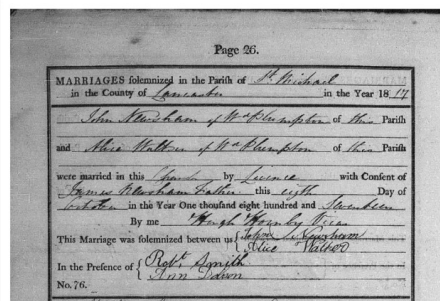 Page 26.
MARRIAGES solemnized in the Parish of St. Michael
in the County of Lancaster in the Year 1817
John Newsham of Wd Plumpton of this Parish
and Alice Walker of Wd Plumpton of this Parish
were married in this Church by Licence with Consent of
James Newsham Father this eigth Day of
October in the Year One thousand eight hundred and Seventeen
By me Hugh Hornby Vicar
This Marriage was solemnized between us { John Newsham
Alice Walker
In the Presence of { Robt. Smith
Ann
No. 76.